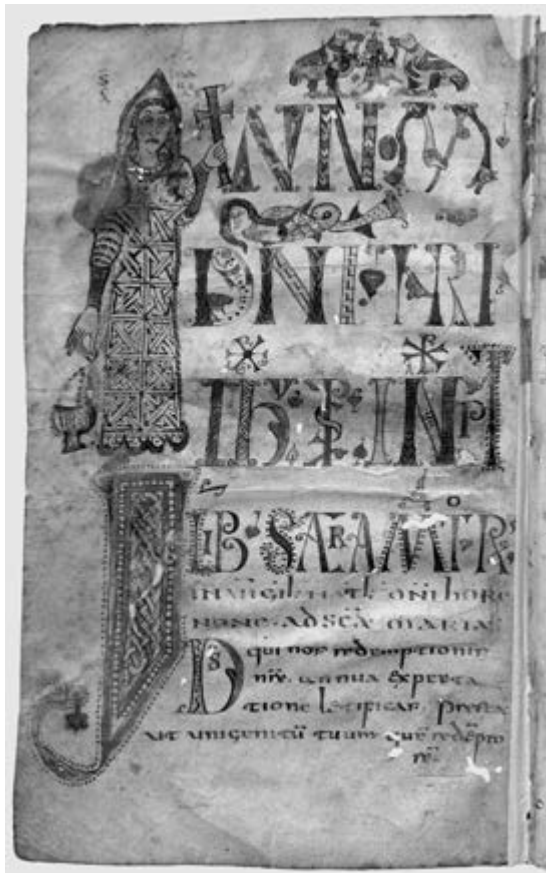 INN·OM
DNI·NTRI
IHV XPI INCPT
LIB SACRAMTOR
IN VIGIL NATL DNI HORE
NONE· AD SCA MARIA
DS qui nos redemptionis
nre· annua expecta
tione letificas· presta
ut unigenitu tuum que redepto
re·